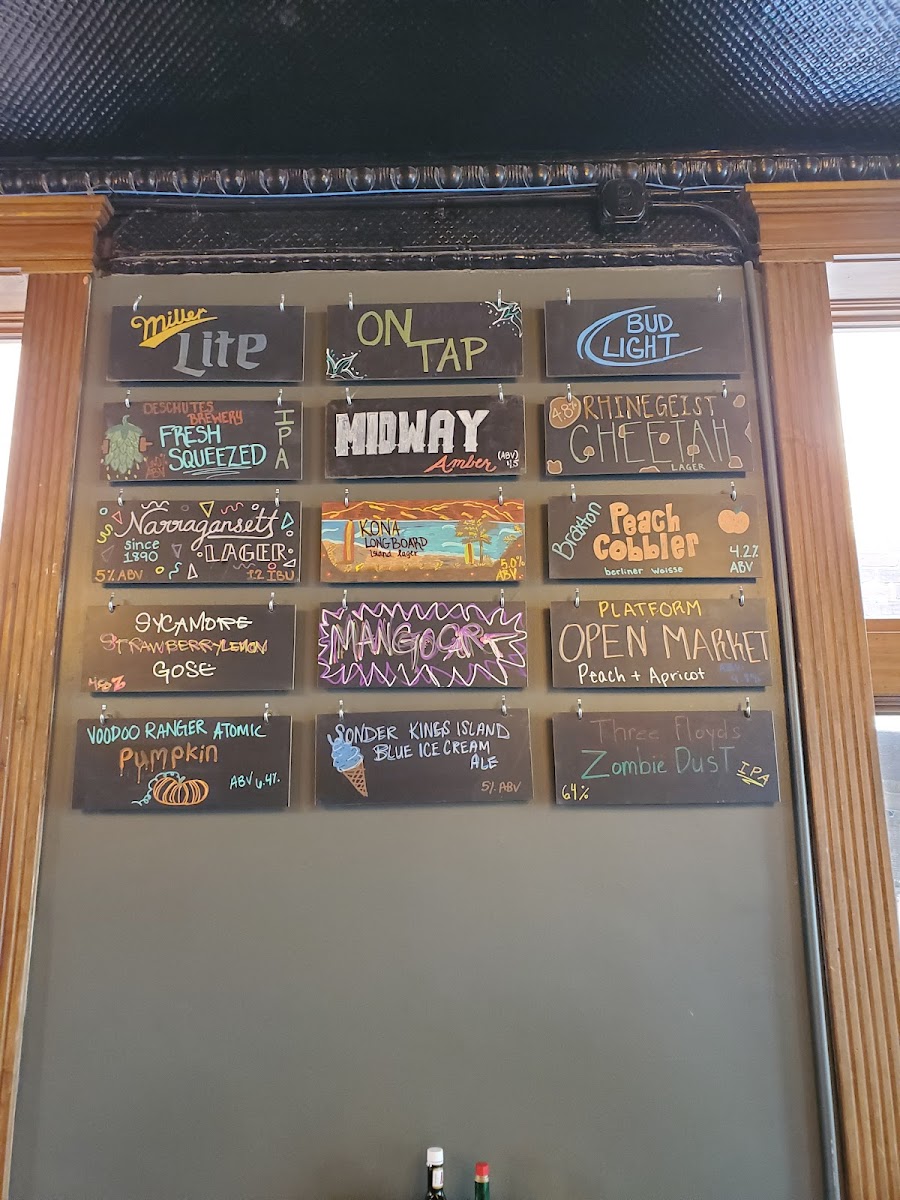 Miller
Lite
ON
TAP
BUD
LIGHT
DESCHUTES
BREWERY
FRESH
SQUEEZED
IPA
MIDWAY
Amber
(ABV)
4.5
4.8%
RHINEGEIST
CHEETAH
LAGER
Narragansett
since
1890
LAGER
5% ABV
12 IBU
KONA
LONGBOARD
Island Lager
5.0%
ABV
Braxton
Peach
Cobbler
berliner weisse
4.2%
ABV
SYCAMORE
STRAWBERRY LEMON
GOSE
MANGOCART
PLATFORM
OPEN MARKET
Peach + Apricot
VOODOO RANGER ATOMIC
Pumpkin
ABV 6.4%
SONDER KINGS ISLAND
BLUE ICE CREAM
ALE
5% ABV
Three Floyds
Zombie Dust
IPA
6.4%